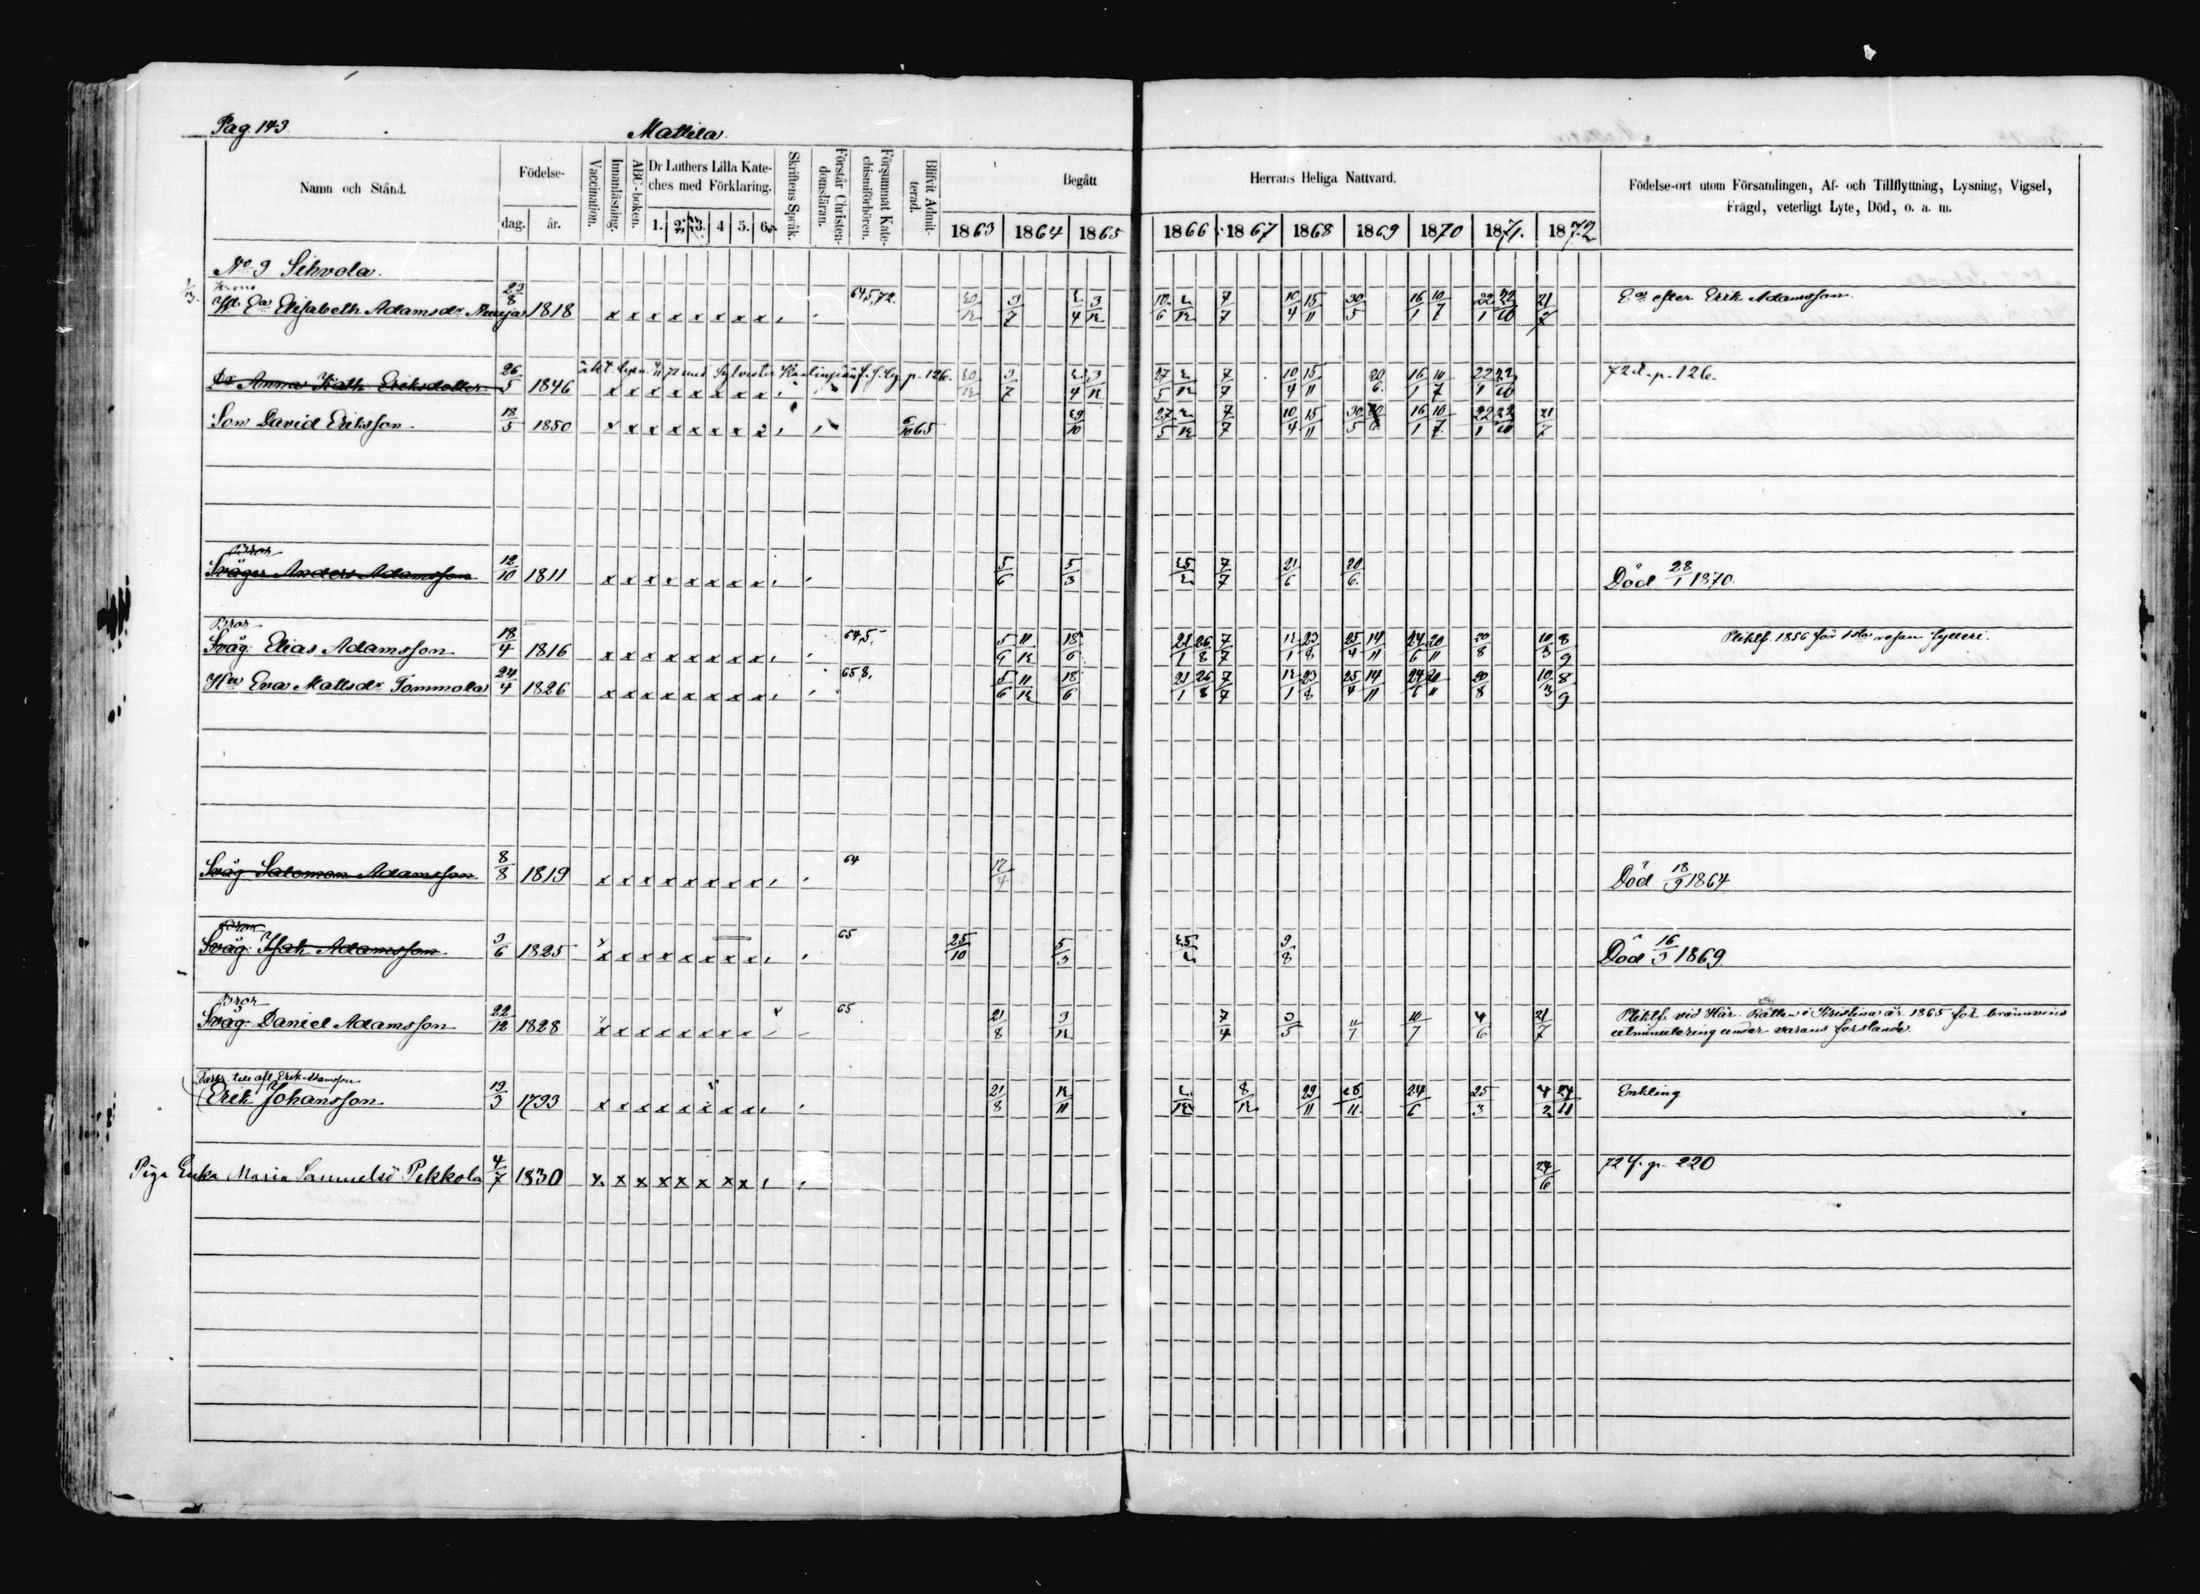 Pag. 143.
Mattila.
Namn och Stånd.
Födelse-
dag. år.
Vaccination.
Innanläsning.
ABC-boken.
Dr Luthers Lilla Kate-
ches med Förklaring.
1. 2. 3. 4 5. 6.
Skriftens Språk.
Förstår Christen-
domsläran.
Försummat Kate-
chismiförhören.
Blifvit Admit-
terad.
Begått Herrans Heliga Nattvard.
1863 1864 1865 1866 1867 1868 1869 1870 1871. 1872
Födelse-ort utom Församlingen, Af- och Tillflyttning, Lysning, Vigsel,
Frägd, veterligt Lyte, Död, o. a. m.
No 9 Sihvola.
1/3. Elisabeth Adamsdr 23/8 1818 x x x x x x x x x , , 64,5,72. 20/12 3/7 2/4 3/12 10/6 2/12 7/7 10/4 15/11 30/5 16/1 10/7 22/1 22/10 21/7 Ea efter Erik Adamsson.
Dr Anna Kath. Eriksdotter 26/5 1846 p. 126. 20/12 3/7 2/4 3/12 27/5 2/12 7/7 10/4 15/11 20/6 16/1 10/7 22/1 22/10 72 d. p. 126.
Son David Eriksson 18/5 1850 x x x x x x x x 2 , , 65 29/10 27/5 2/12 7/7 10/4 15/11 30/5 20/6 16/1 10/7 22/1 22/10 21/7
Bror
Svåger Anders Adamsson 12/10 1811 x x x x x x x x x , , 5/6 5/3 25/2 7/7 21/6 20/6 Död 28/1 1870.
Bror
Svåg. Elias Adamsson 18/4 1816 x x x x x x x x x , , 64,5, 5/6 11/12 18/6 21/1 26/8 7/7 12/1 23/8 25/4 14/11 24/6 20/11 20/8 10/3 8/9 Pliktf. 1856 för 1sta resan fylleri.
Hu Eva Mattsdr Tommola 24/4 1826 x x x x x x x x x , , 65,8, 5/6 11/12 18/6 21/1 26/8 7/7 12/1 23/8 25/4 14/11 24/6 20/11 20/8 10/3 8/9
Svåg Salomon Adamsson 8/8 1819 x x x x x x x x x , , 64 17/4 Död 18/9 1864
Bror
Svåg. Isak Adamsson 3/6 1825 x x x x x x x x x , , 65 25/10 5/3 25/2 9/8 Död 16/3 1869.
Bror
Svåg. Daniel Adamsson 22/12 1828 x x x x x x x x x 65 21/8 3/12 7/4 3/5 11/7 10/7 4/6 21/7 Pliktf. vid Här. Rätten i Kristina år 1865 för bränvins
utminutering under varans
till afl. Erik Adamsson
Erik Johansson 19/3 1793 x x x x x x x x x , , 21/8 12/11 2/12 8/12 29/11 28/11 24/6 25/3 4/2 24/11 Enkling
Piga Erika Maria Samuelsd Pekkola 4/7 1830 x x x x x x x x , , 24/6 72 f. p. 220